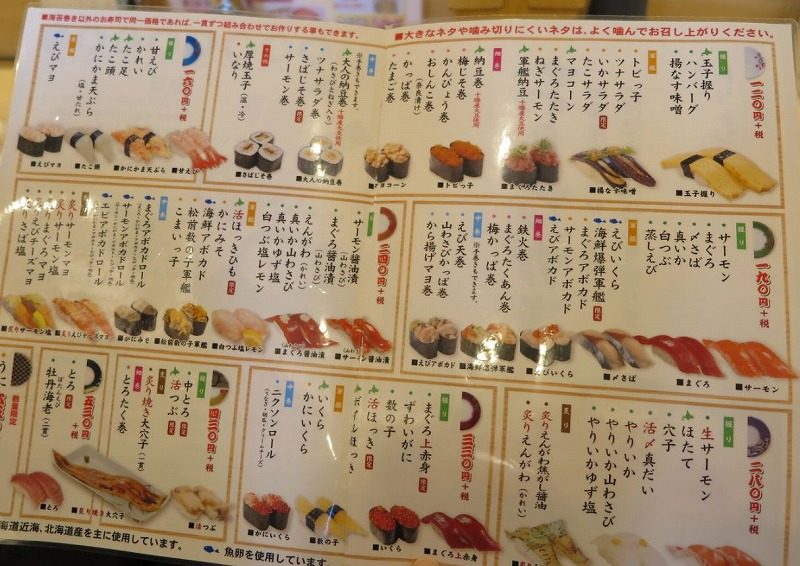 ■海苔巻き以外のお寿司で同一価格であれば、一貫ずつ組み合わせてお作りする事もできます。
■大きなネタや噛み切りにくいネタは、よく噛んでお召し上がりください。
一三〇円+税
握り
玉子握り
ハンバーグ
揚なす味噌
軍艦
トビっ子
ツナサラダ
いかサラダ 限定
たこサラダ
マヨコーン
まぐろたたき
ねぎサーモン
軍艦納豆 十勝産大豆使用
細巻
納豆巻 十勝産大豆使用
梅じそ巻
かんぴょう巻
おしんこ巻 (奈良漬け)
かっぱ巻
たまご巻
中巻
※手巻きもできます。
大人の納豆巻 (わさびとねぎ入り)
ツナサラダ巻
さばじそ巻 限定
サーモン巻
厚焼玉子 (温・冷)
いなり
■玉子握り
■揚なす味噌
■まぐろたたき
■トビっ子
■マヨコーン
■大人の納豆巻
■さばじそ巻
一六〇円+税
握り
甘えび
かれい
たこ足
たこ頭
かにかま天ぷら (塩・甘たれ)
えびマヨ
■甘えび
■かにかま天ぷら
■たこ頭
■えびマヨ
一九〇円+税
握り
サーモン
まぐろ
〆さば
真いか
白つぶ
蒸しえび
えびいくら
海鮮爆弾軍艦 限定
まぐろアボカド
サーモンアボカド
えびアボカド
細巻
鉄火巻
まぐろたくあん巻
梅かっぱ巻
中巻
※手巻きもできます。
えび天巻
山わさびかっぱ巻
から揚げマヨ巻
■サーモン
■まぐろ
■〆さば
■えびいくら
■海鮮爆弾軍艦
■えびアボカド
二四〇円+税
握り
サーモン醤油漬 (山わさび)
まぐろ醤油漬 (山わさび)
えんがわ (かれい)
真いか山わさび
真いかゆず塩
白つぶ塩レモン
活ほっきひも 限定
かにみそ
海鮮アボカド
松前数の子軍艦
こまいっ子
まぐろアボカドロール
サーモンアボカドロール
エビアボカドロール
炙りサーモンマヨ
炙りサーモン塩
炙りまぐろマヨ
炙りえびチーズマヨ
炙りさば塩
■サーモン醤油漬 (山わさび)
■まぐろ醤油漬 (山わさび)
■白つぶ塩レモン
■松前数の子軍艦
■かにみそ
■炙りえびチーズマヨ
■炙りサーモン塩
二八〇円+税
握り
生サーモン
ほたて
穴子
活〆真だい
やりいか
やりいか山わさび
やりいかゆず塩
炙り
炙りえんがわ焦がし醤油
炙りえんがわ (かれい)
三三〇円+税
握り
まぐろ上赤身
ずわいがに
数の子
活ほっき 限定
ボイルほっき
軍艦
いくら
かにいくら
中巻
ニクソンロール
(うなぎ・胡瓜・クリームチーズ)
■まぐろ上赤身
■いくら
■数の子
■かにいくら
四三〇円+税
握り
中とろ 限定
活つぶ 限定
炙り
炙り焼き大穴子 (一貫)
細巻
とろたく巻
■活つぶ
■炙り焼き大穴子
五三〇円+税
とろ 限定
牡丹海老 (一貫)
ぼたんえび
■とろ
数量限定
うに
海道近海、北海道産を主に使用しています。
魚卵を使用しています。